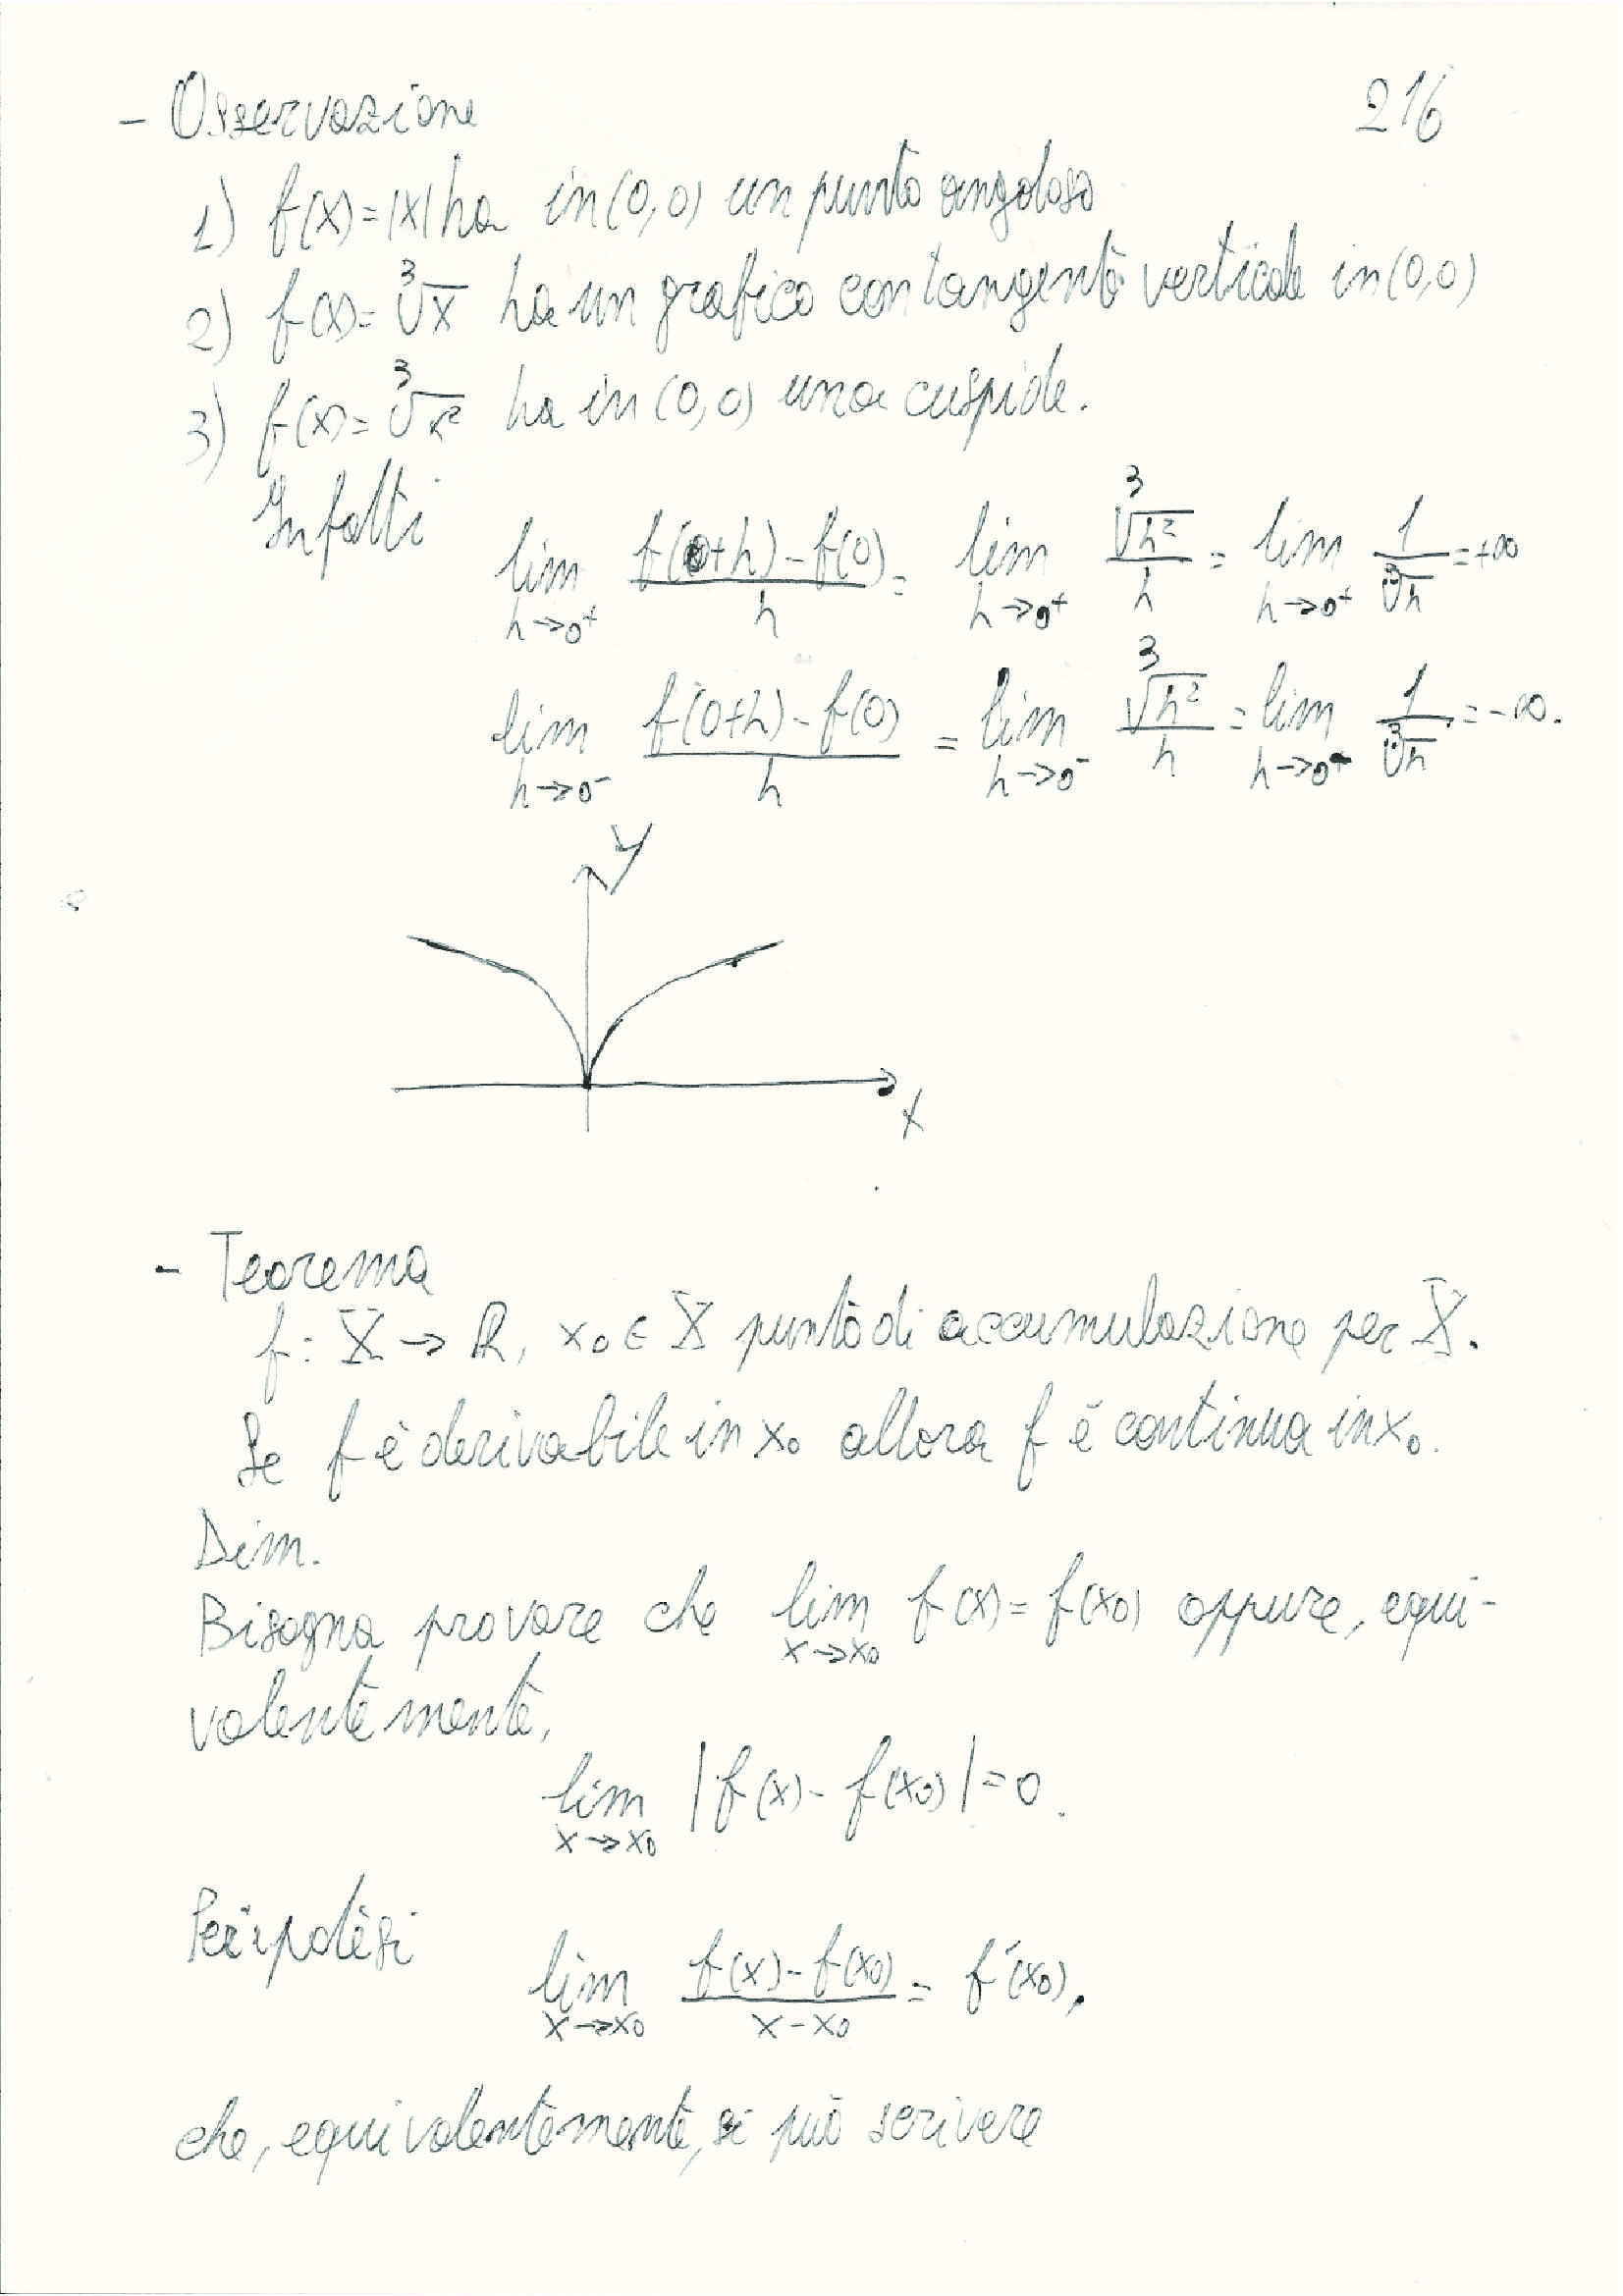 216
- Osservazione
1) f(x)=|x| ha in (0,0) un punto angoloso
2) f(x)=∛x ha un grafico con tangente verticale in (0,0)
3) f(x)=∛x² ha in (0,0) una cuspide.
Infatti lim_{h→0⁺} (f(0+h)-f(0))/h = lim_{h→0⁺} ∛h²/h = lim_{h→0⁺} 1/∛h = +∞
lim_{h→0⁻} (f(0+h)-f(0))/h = lim_{h→0⁻} ∛h²/h = lim_{h→0⁻} 1/∛h = -∞.
y
x
- Teorema
f: X → ℝ, x₀ ∈ X punto di accumulazione per X.
Se f è derivabile in x₀ allora f è continua in x₀.
Dim.
Bisogna provare che lim_{x→x₀} f(x) = f(x₀) oppure, equi-
valentemente,
lim_{x→x₀} |f(x)-f(x₀)|=0.
Per ipotesi
lim_{x→x₀} (f(x)-f(x₀))/(x-x₀) = f'(x₀),
che, equivalentemente, si può scrivere